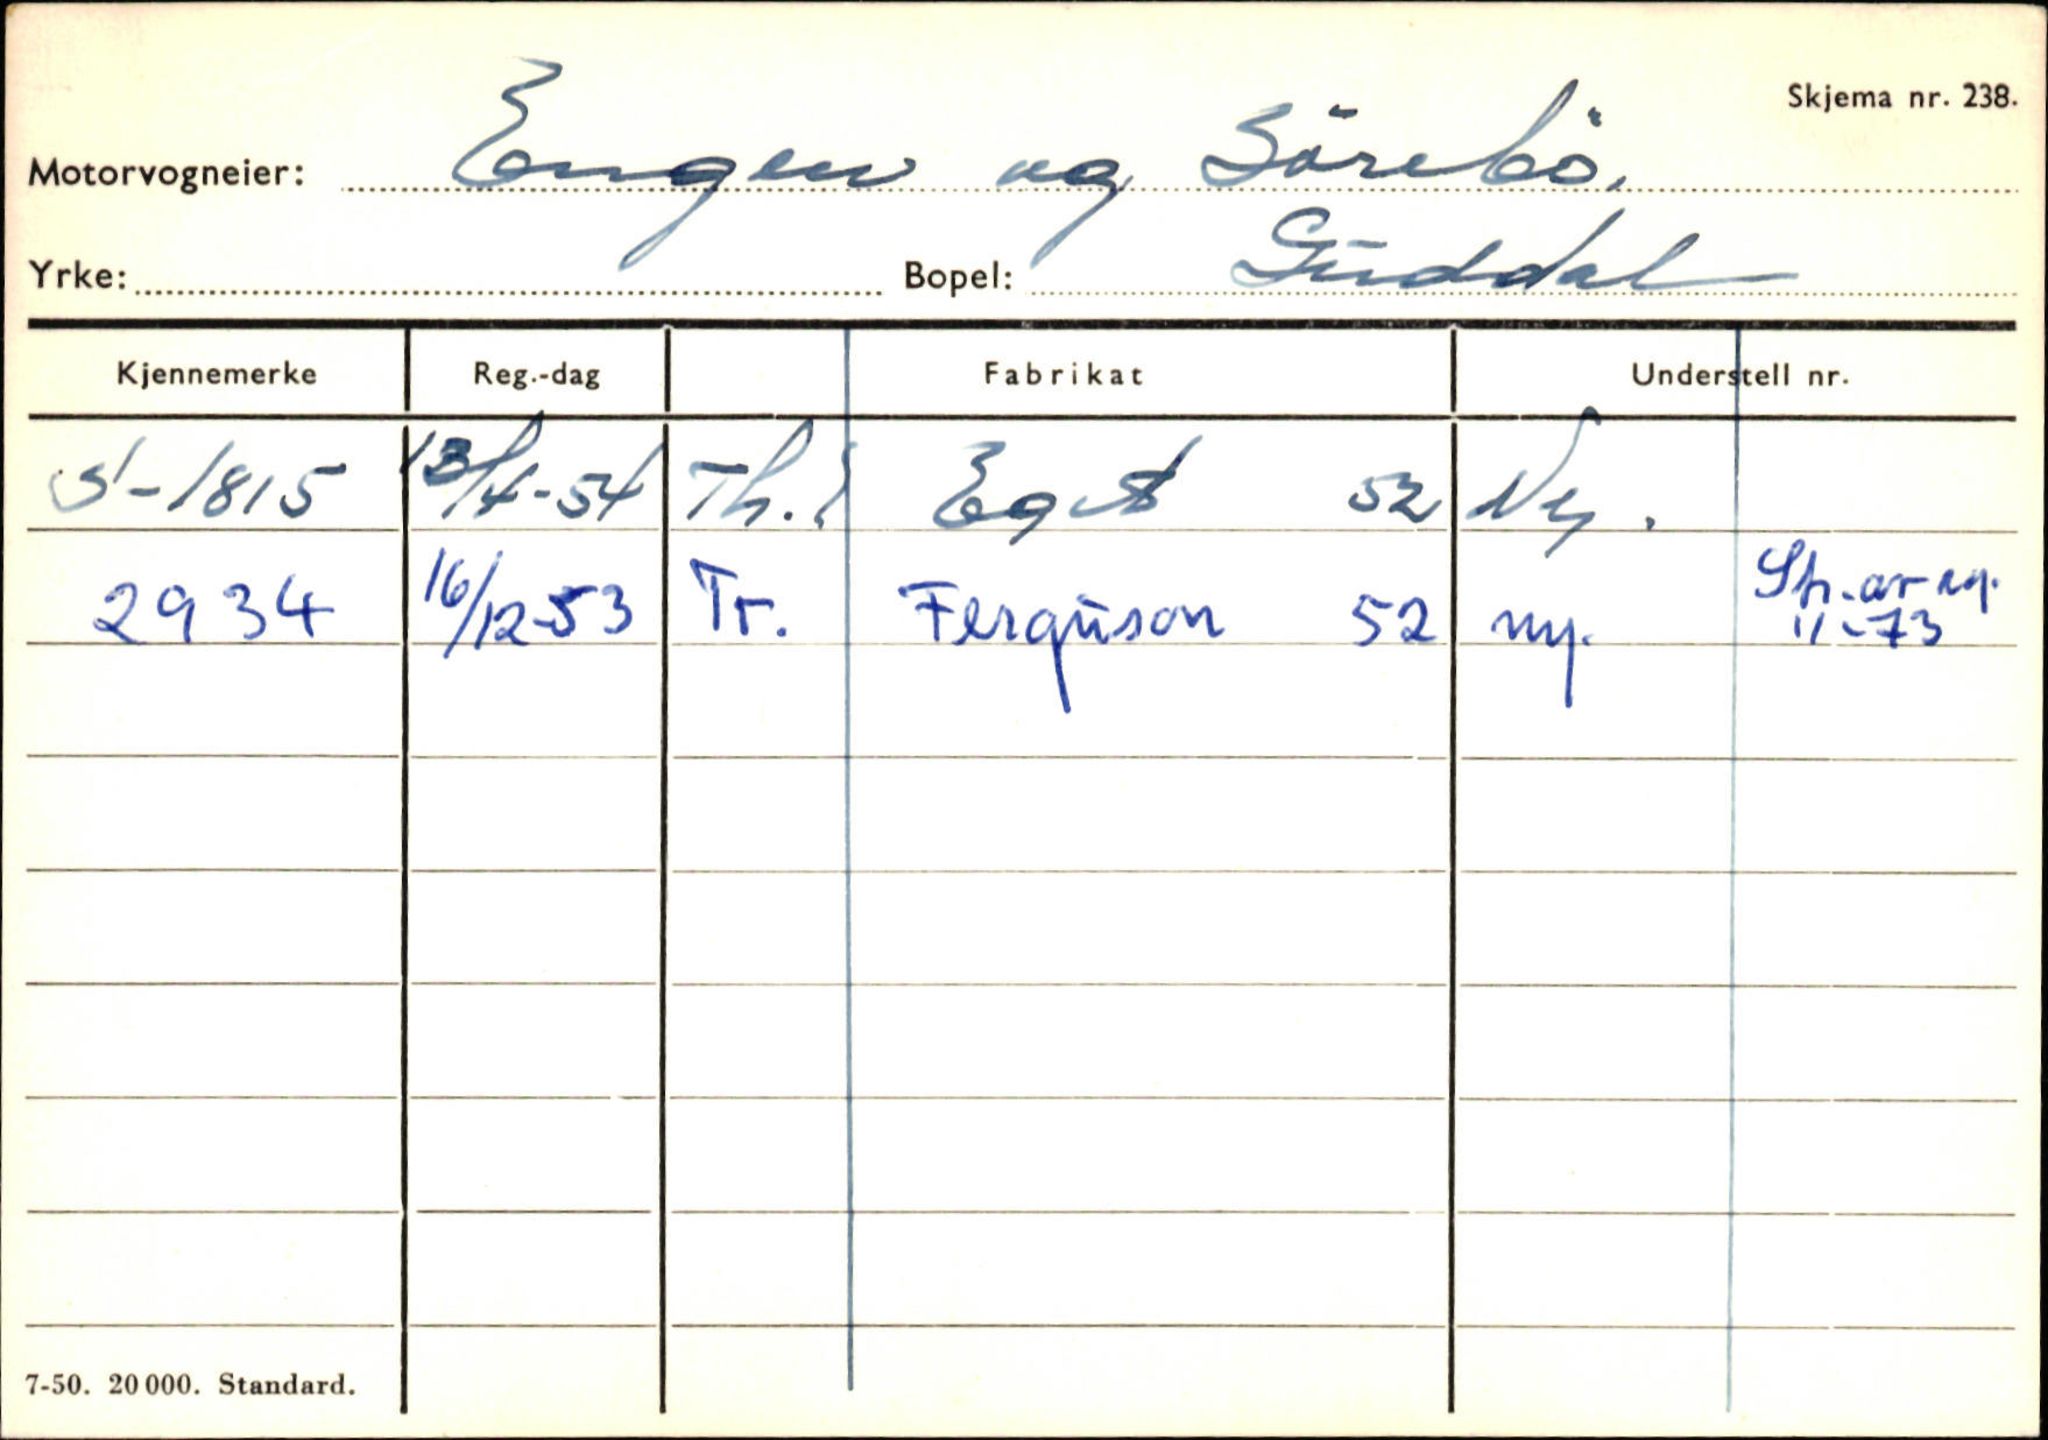 Skjema nr. 238.
Motorvogneier: Engen og Sörebö.
Yrke: Bopel: Guddal
Kjennemerke Reg.-dag Fabrikat Understell nr.
S-1815 13/4-54 Th. 52 Ny.
2934 16/12-53 Tr. Ferguson 52 ny. 11-73
7-50. 20 000. Standard.